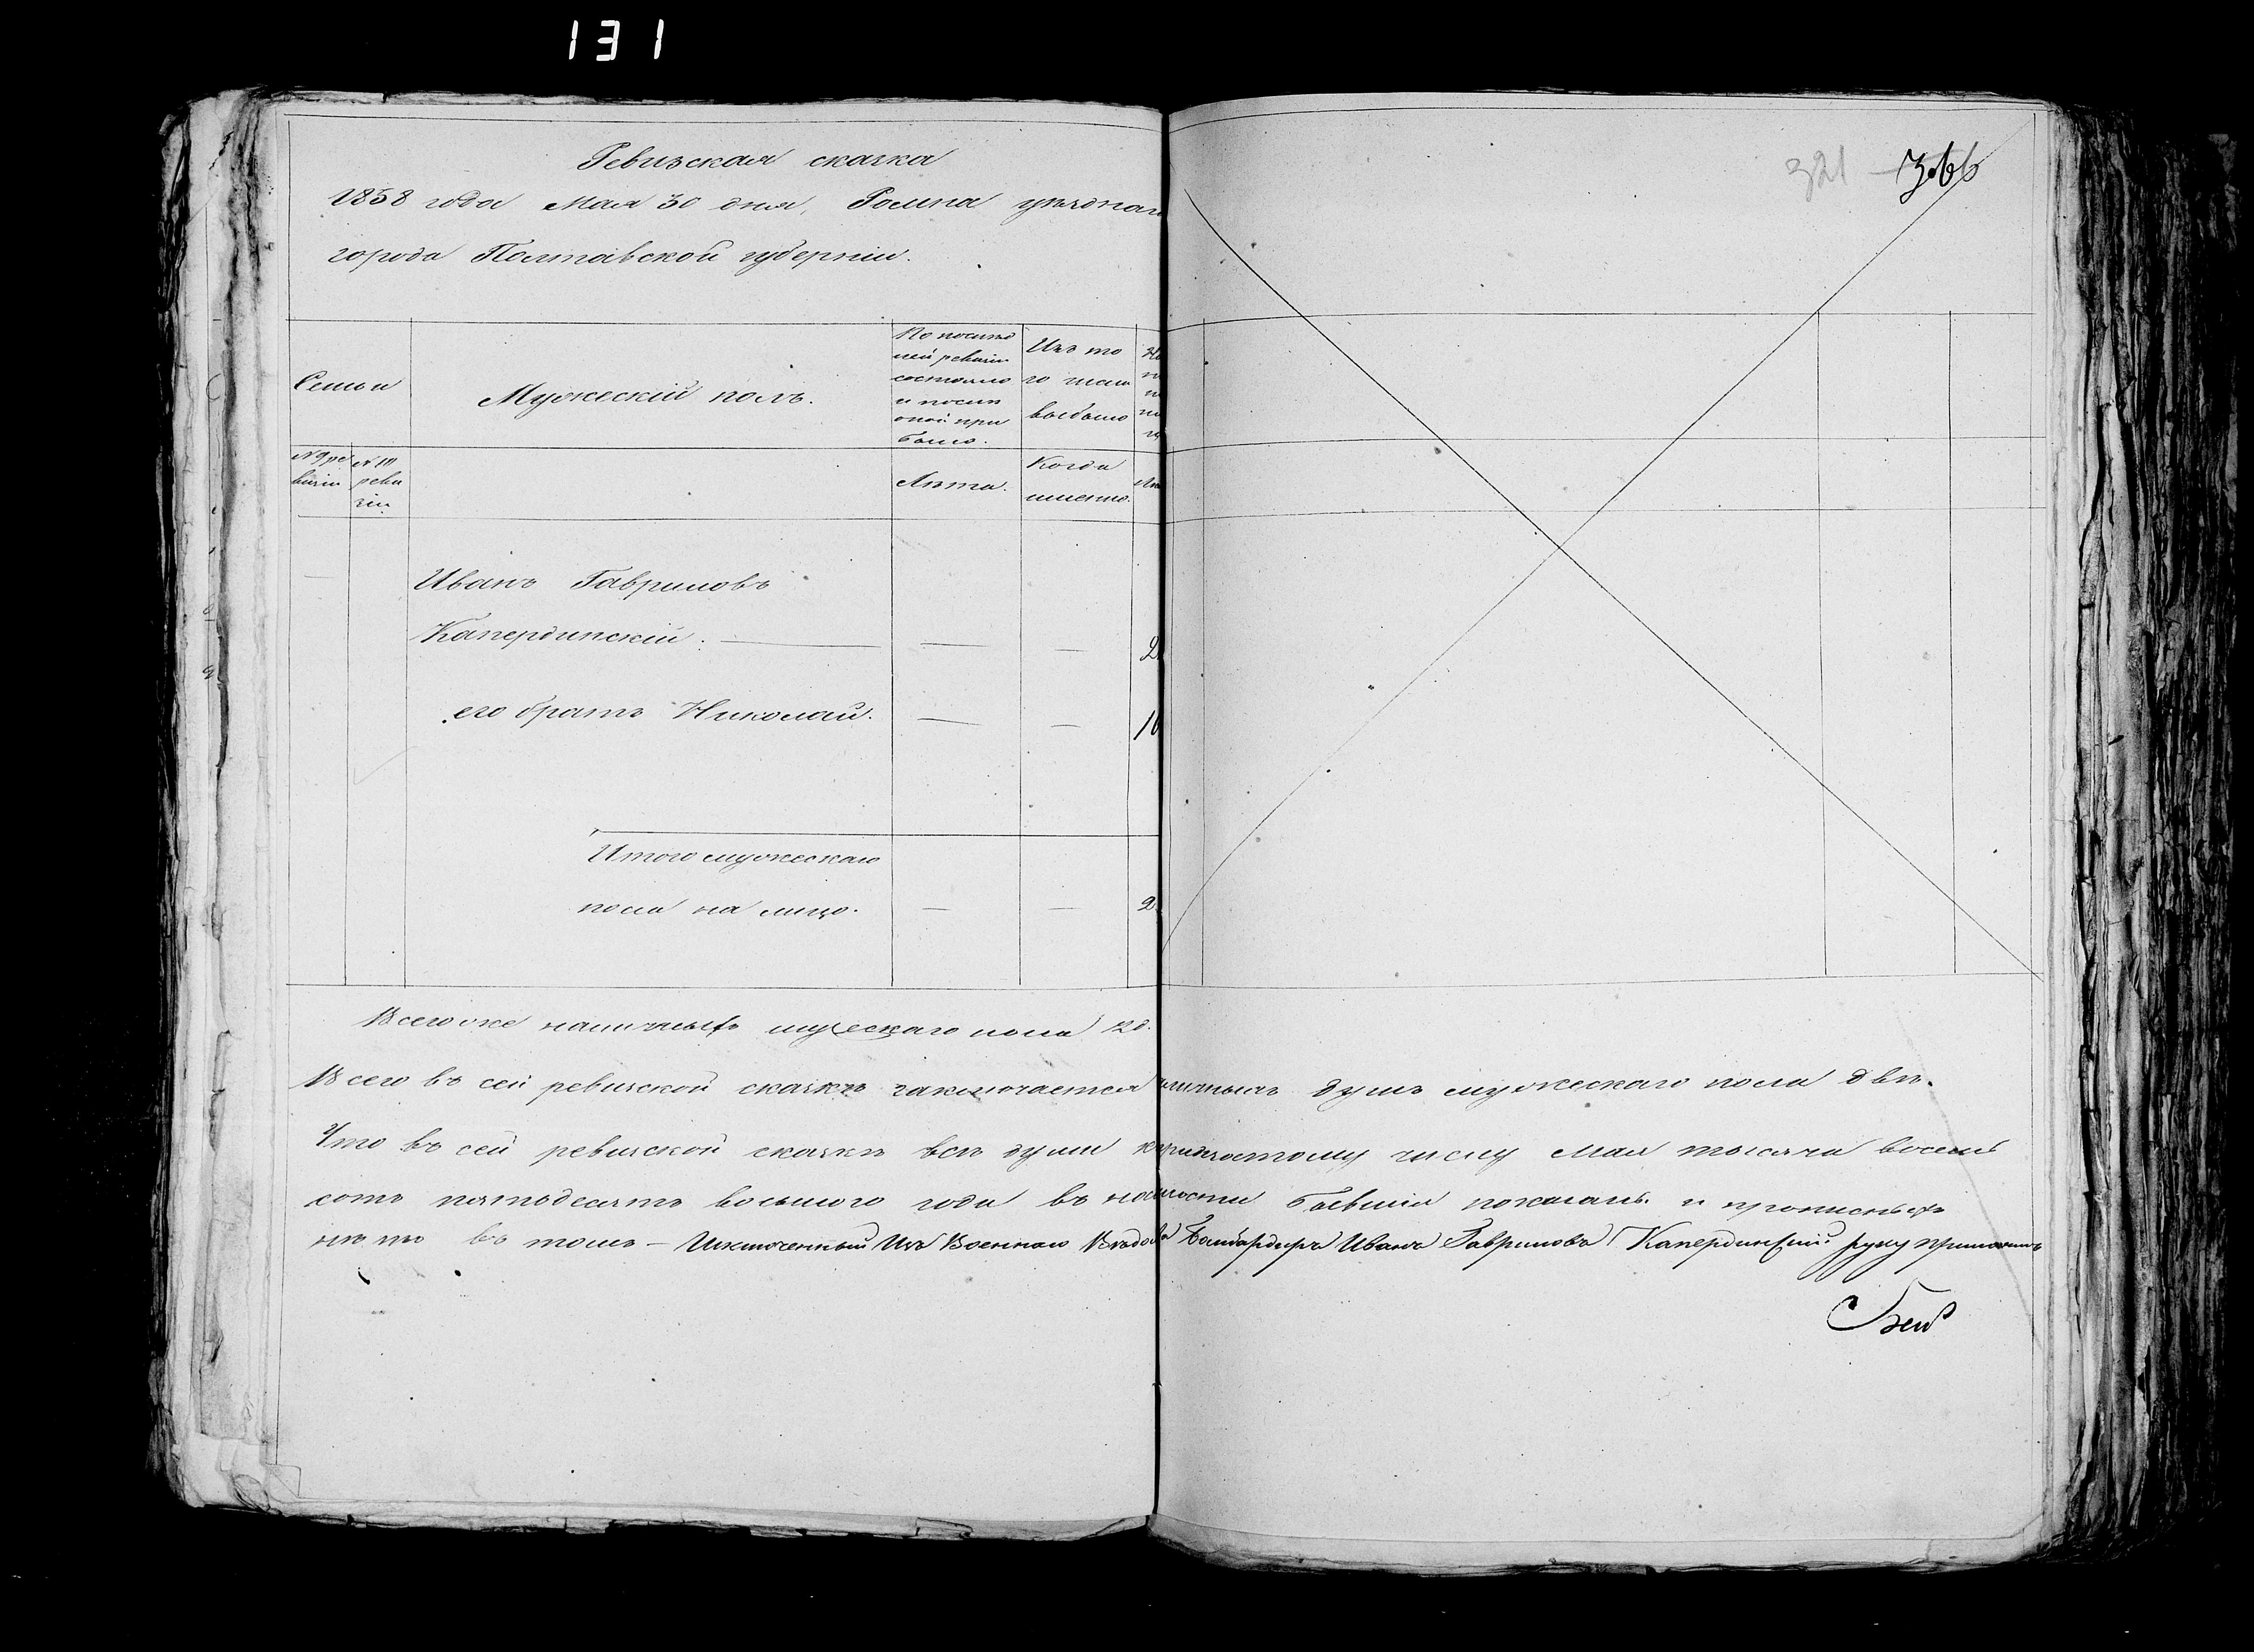 131
321 366
Ревизская сказка
1858 года Мая 30 дня, Ромна уѣзднаго
города Полтавской губерніи.
Семьи
Мужескій полъ.
По послѣд
ней ревизіи
состояло
и послѣ
оной при
было.
Изъ то
го числа
выбыло
№ 9 ре
визіи
№ 10
реви
зіи
Лѣта.
Когда
именно.
Иванъ Гавриловъ
Капердинскій. — — — 2
его братъ Николай. — — 10
Итого мужескаго
пола на лицо. — — 2
Всего же наличныхъ мужескаго пола 2 д.
Всего въ сей ревизской сказкѣ заключается наличныхъ душъ мужескаго пола двѣ.
Что въ сей ревизской сказкѣ всѣ души къ тридцатому числу Мая тысяча восемь
сотъ пятьдесятъ восьмого года въ наличности бывшія показаны и прописныхъ
нѣтъ въ томъ — Исключенный Изъ Военнаго Вѣдомства Бомбардиръ Иванъ Гавриловъ Капердинскій руку приложилъ